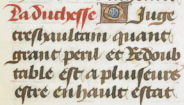 La duchesse Iuge
treshaultain quant
grant peril et Redoub
table est a pluiseurs
estre en hault estat